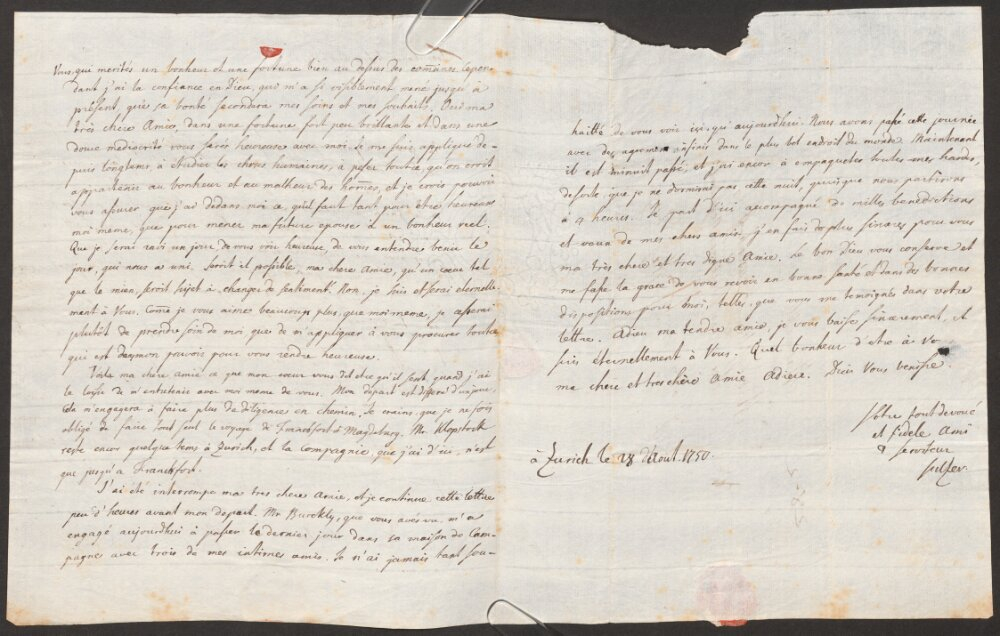 Vous, qui merités un bonheur et une fortune bien au dessus des com̄unes. Cepen-
dant j'ai la confiance en Dieu, qui m'a si visiblement mené jusqu'à
présent, que sa bonté secondera mes soins et mes souhaits. Oui ma
très chere Amie, dans une fortune fort peu brillante et dans une
douce mediocrité vous serés heureuse avec moi. Je me suis appliqué de-
puis longtems à etudier les choses humaines, à peser tout ce, qu'on croit
appartenir au bonheur et au malheur des hom̄es, et je crois pouvoir
vous assurer que j'ai dedans moi ce, qu'il faut tant pour être heureux
moi meme, que pour mener ma future epouse à un bonheur reel.
Que je serai ravi un jour de vous voir heureuse de vous entendre benir le
jour, qui nous a uni. Seroit il possible, ma chere Amie, qu'un cœur tel
que le mien, seroit sujet à changer de sentiment. Non, je suis et serai eternelle-
ment à Vous. Com̄e je vous aime beaucoup plus, que moi meme, je cesserai
plutôt de prendre soin de moi que de m'appliquer à vous procurer tout ce
qui est de mon pouvoir pour vous rendre heureuse.
Voila ma chere Amie ce que mon cœur vous dit et ce qu'il sent, quand j'ai
le loisir de m'entretenir avec moi meme de vous. Mon depart est differé d'un jour,
cela m'engagera à faire plus de diligence en chemin. Je crains, que je ne sois
obligé de faire tout seul le voyage de Francfort à Magdeburg. Mr. Klopstock
reste encor quelque tems à Zurich, et la compagnie, que j'ai d'ici, n'est
que jusqu'a Francfort.
J'ai été interrompu ma tres chere Amie, et je continue cette lettre
peu d'heures avant mon depart. Mr Burckly, que vous avés vu, m'a
engagé aujourdhui à passer le dernier jour dans sa maison de Cam-
pagnes avec trois de mes intimes amis. Je n'ai jamais tant sou-
haitté de vous voir ici, qu'aujourdhui. Nous avons passé cette journée
avec des agremens infinis dans le plus bel endroit du monde. Maintenant
il est minuit passé, et j'ai encor à empaqueter toutes mes hardes,
desorte que je ne dormirai pas cette nuit, puisque nous partirons
à 4 heures. Je part d'ici accompagné de mille benedictions
et vœux de mes chers amis, j'en fais de plus sinceres pour vous
ma très chere et tres digne Amie. Le bon Dieu vous conserve et
me fasse la grace de vous revoir en bonne santé et dans des bonnes
dispositions pour moi, telles, que vous me temoignés dans votre
lettre. Adieu ma tendre amie, je vous baise sincerement, et
suis éternellement à Vous. Quel bonheur d'etre à Vo
ma chere et tres chère Amie Adieu. Dieu Vous benisse.
Votre tout devoué
et fidele Ami
& serviteur
Sulzer.
à Zurich le 18 d'Aout. 1750.